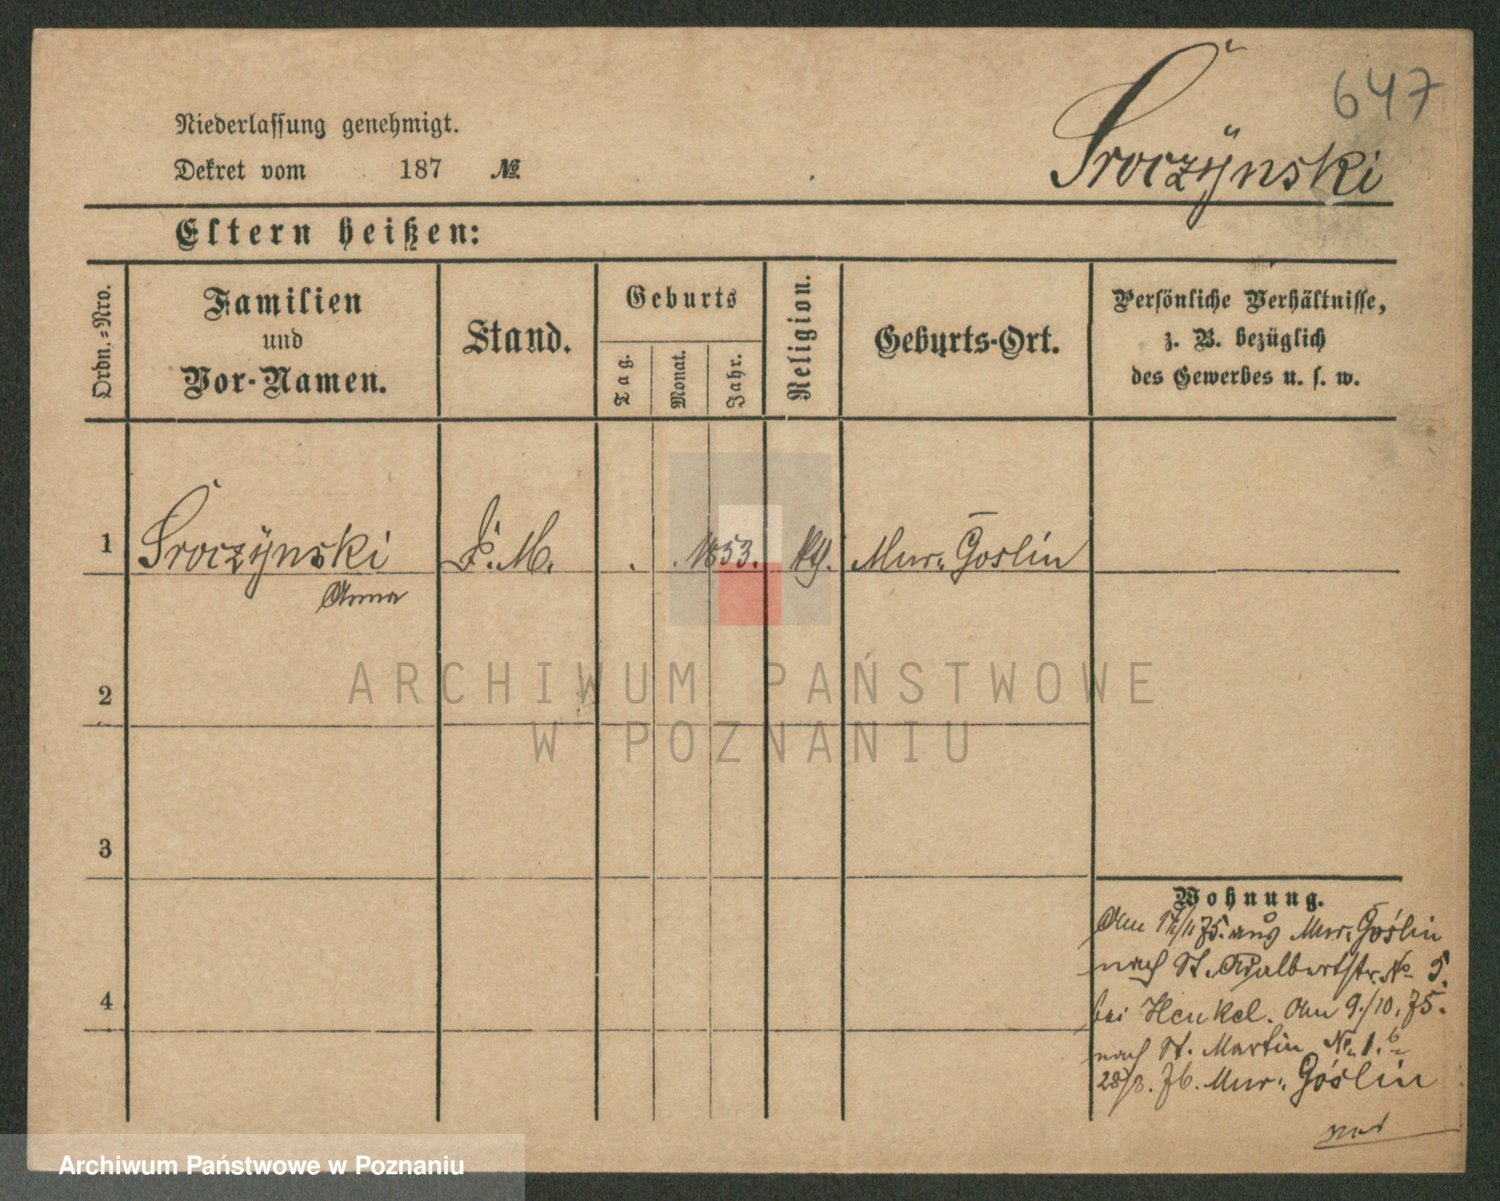 647
Sroczÿnski
Niederlassung genehmigt.
Dekret vom 187 №
Eltern heißen:
Ordn.-Nro.
Familien
und
Vor-Namen.
Stand.
Geburts
Tag.
Monat.
Jahr.
Religion.
Geburts-Ort.
Persönliche Verhältnisse,
z. B. bezüglich
des Gewerbes u. s. w.
1 Sroczÿnski D. M. . . 1853. kth. Mur. Goslin
Anna
2
3
4
Wohnung.
Am 17/11 75. aus Mur. Goslin
nach St. Adalbertstr. No 5.
bei Henkel. Am 9./10. 75.
nach St. Martin No 1.
28/3. 76. Mur. Goslin
ARCHIWUM PAŃSTWOWE
W POZNANIU
Archiwum Państwowe w Poznaniu